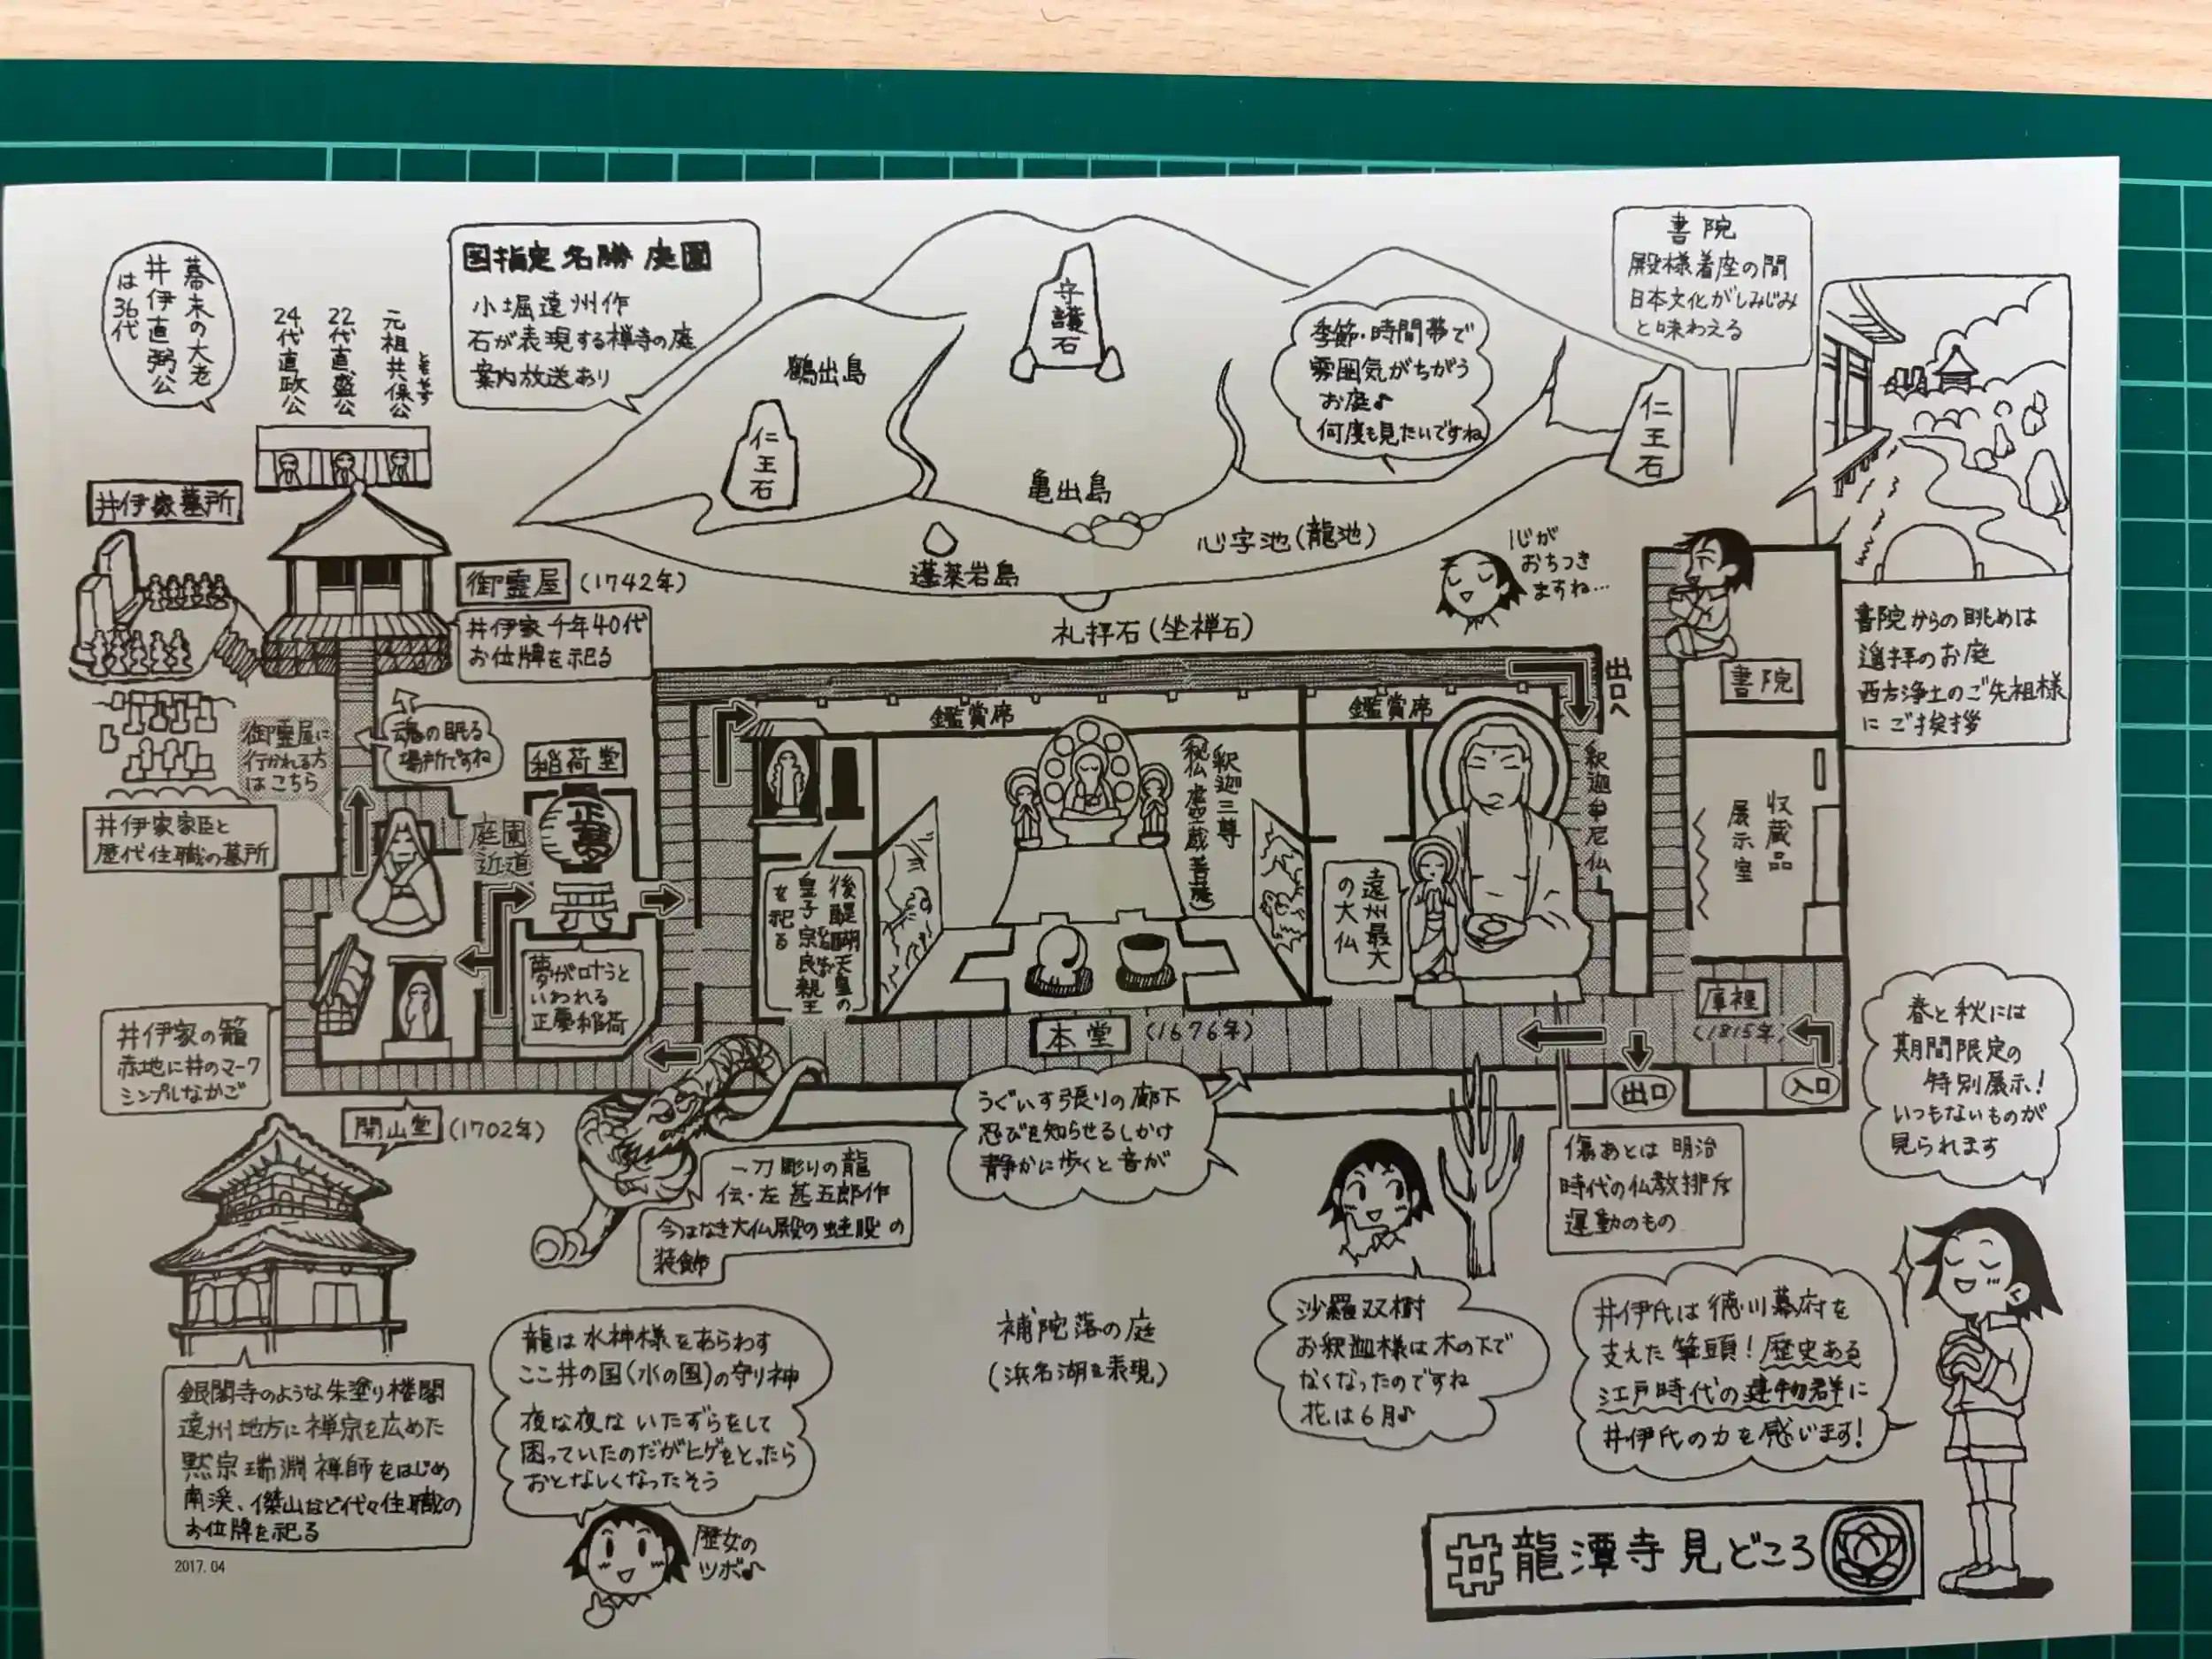 幕末の大老
井伊直弼公
は36代
元祖共保公
ともやす
22代直盛公
24代直政公
国指定名勝庭園
小堀遠州作
石が表現する禅寺の庭
案内放送あり
鶴出島
守護石
仁王石
亀出島
季節・時間帯で
雰囲気がちがう
お庭♪
何度も見たいですね
仁王石
書院
殿様着座の間
日本文化がしみじみ
と味わえる
心字池(龍池)
蓬莱岩島
礼拝石(坐禅石)
心が
おちつき
ますね…
書院からの眺めは
遥拝のお庭
西方浄土のご先祖様
にご挨拶
井伊家墓所
御霊屋(1742年)
井伊家千年40代
お位牌を祀る
御霊屋に
行かれる方
はこちら
魂の眠る
場所ですね
井伊家家臣と
歴代住職の墓所
稲荷堂
正夢
庭園
近道
夢が叶うと
いわれる
正夢稲荷
井伊家の籠
赤地に井のマーク
シンプルなかご
開山堂(1702年)
鑑賞席
鑑賞席
出口へ
後醍醐天皇の
皇子宗良親王
を祀る
釈迦三尊
(秘仏虚空蔵菩薩)
遠州最大
の大仏
釈迦牟尼仏
書院
収蔵品
展示室
庫裡
(1815年)
入口
出口
本堂(1676年)
うぐいす張りの廊下
忍びを知らせるしかけ
静かに歩くと音が
一刀彫りの龍
伝・左甚五郎作
今はなき大仏殿の蛙股の
装飾
傷あとは明治
時代の仏教排斥
運動のもの
春と秋には
期間限定の
特別展示!
いつもないものが
見られます
銀閣寺のような朱塗り楼閣
遠州地方に禅宗を広めた
黙宗瑞淵禅師をはじめ
南渓、傑山など代々住職の
お位牌を祀る
2017.04
龍は水神様をあらわす
ここ井の国(水の国)の守り神
夜な夜ないたずらをして
困っていたのだがヒゲをとったら
おとなしくなったそう
歴女の
ツボ♪
補陀落の庭
(浜名湖を表現)
沙羅双樹
お釈迦様は木の下で
なくなったのですね
花は6月♪
井伊氏は徳川幕府を
支えた筆頭!歴史ある
江戸時代の建物群に
井伊氏の力を感じます!
井龍潭寺見どころ